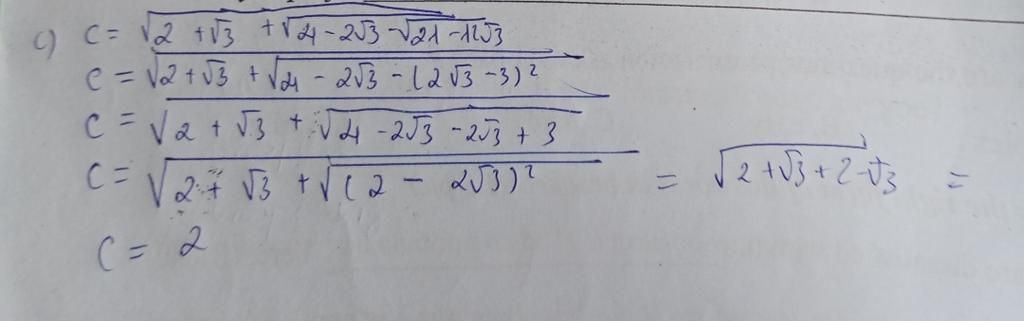 c) C = √2 + √3 + √4 - 2√3 - √21 - 12√3
C = √2 + √3 + √4 - 2√3 - (2√3 - 3)²
C = √2 + √3 + √4 - 2√3 - 2√3 + 3
C = √2 + √3 + √(2 - 2√3)² = √2 + √3 + 2 - √3 =
C = 2